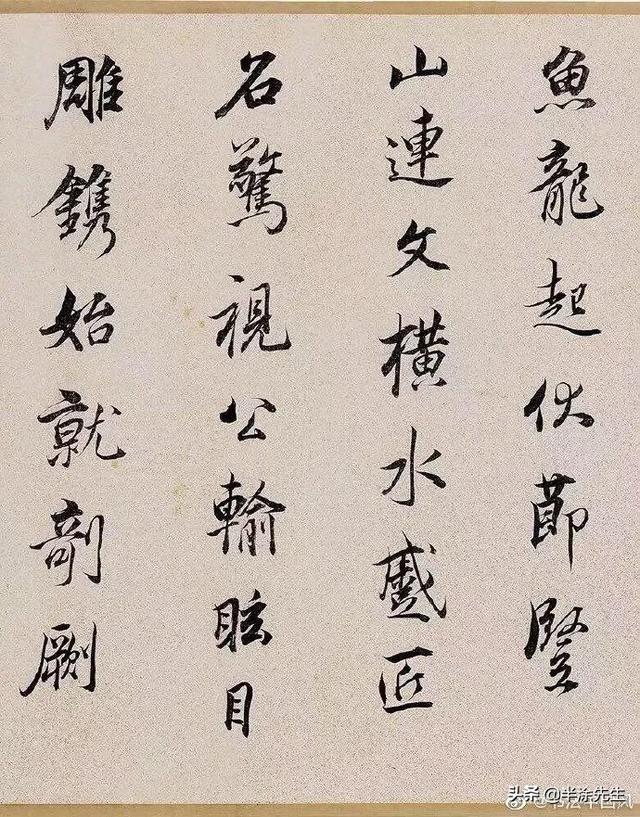 魚龍起伏節豎
山連文横水蹙匠
石驚視公輸眩目
雕鐫始就剞劂
头条 @半涂先生